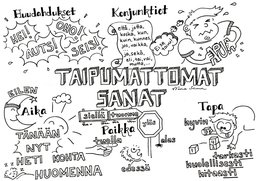 Huudahdukset
HEI!
OHO!
AUTS!
SEIS!
Konjunktiot
että, jotta,
koska, kun
kuin, kunnes,
jos, vaikka
ja, sekä,
eli, tai, vai,
mutta,
APUA
TAIPUMATTOMAT
SANAT
EILEN
Aika
TÄNÄÄN
NYT
HETI
KOHTA
HUOMENNA
siellä
Paikka
tuolla
edessä
ylös
alas
Tapa
hyvin
tarkasti
huolellisesti
hitaasti